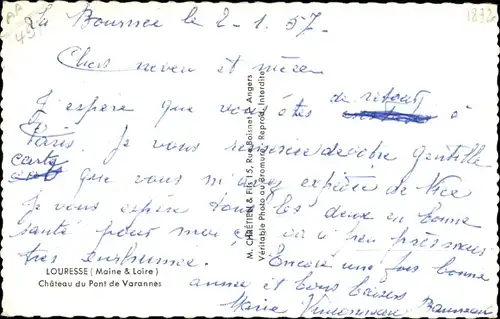 AR
49
1832
La Bournée le 2-1.57-
Chers neveu et nièce
J'espère que vous êtes de retour à
Paris. Je vous remercie de votre gentille
carte que vous m'avez expédiée de Nice
Je vous espère tous les deux en bonne
santé pour moi ça va à peu près mais
très enrhumée. Encore une fois bonne
année et bons baisers
Marie
M. CHRÉTIEN & Fils 15, Rue Boisnet - Angers
Véritable Photo au Bromure - Reprod. Interdite
LOURESSE ( Maine & Loire )
Château du Pont de Varannes